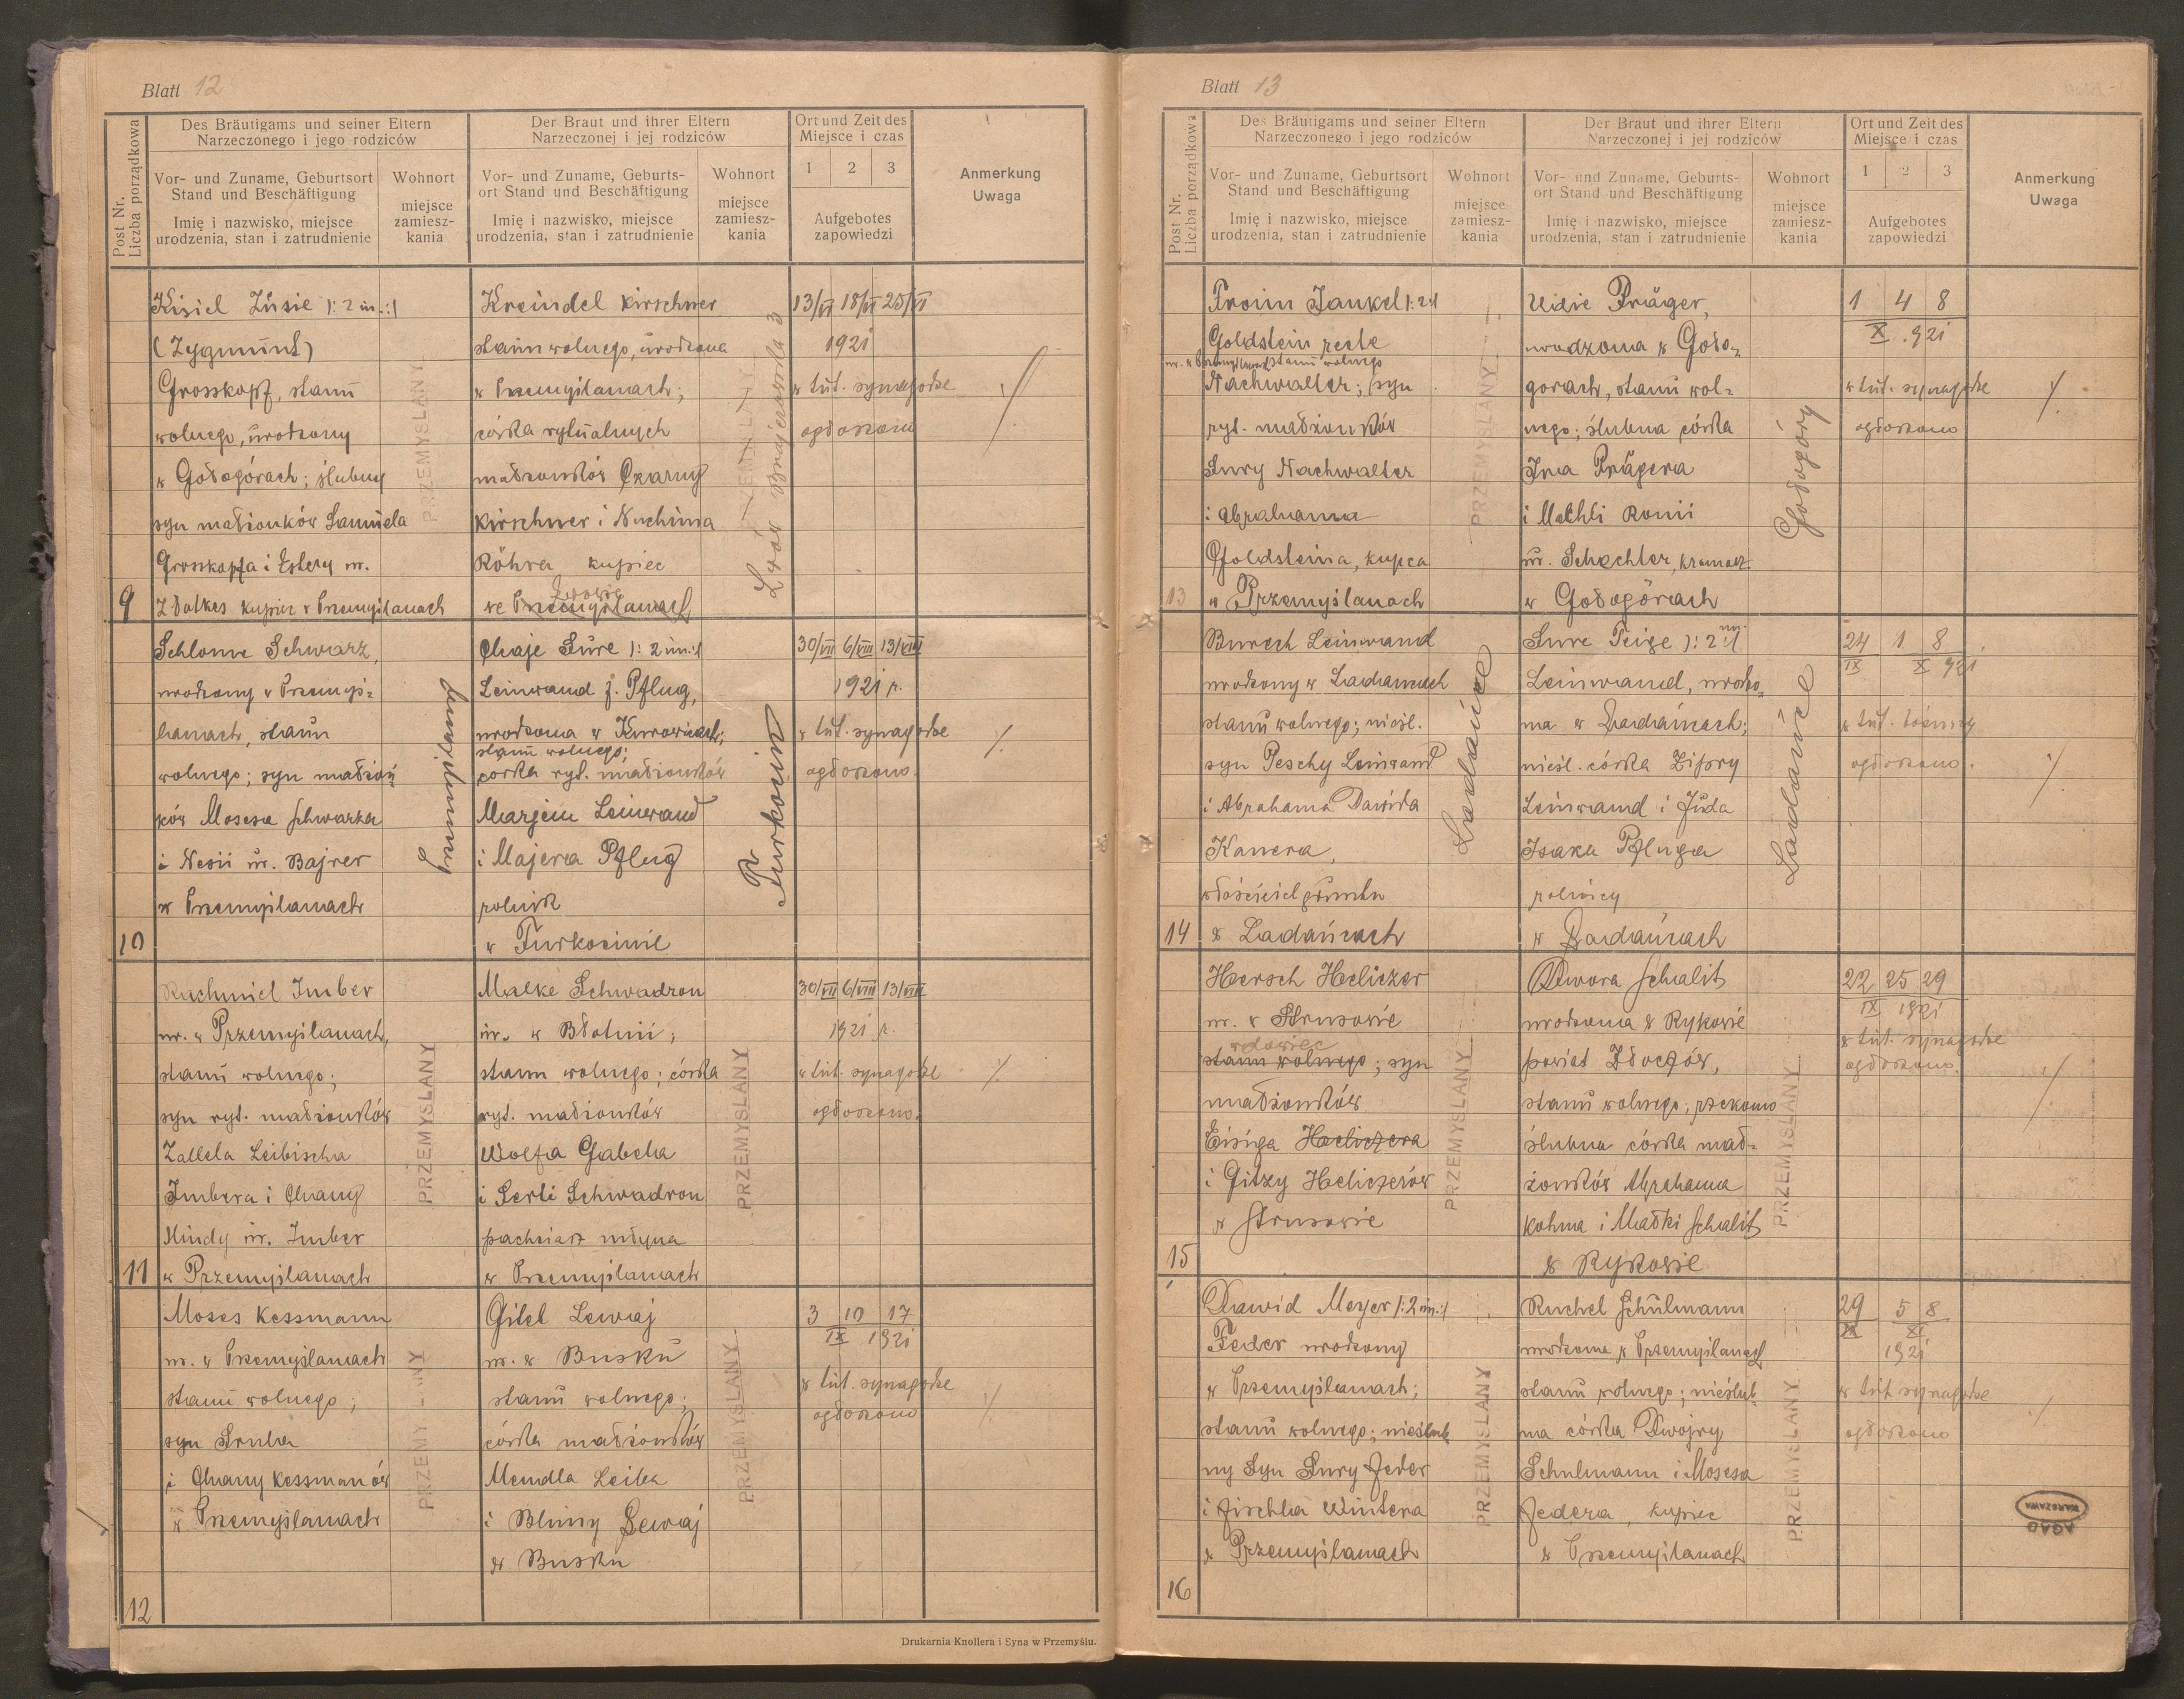 Blatt 12
Post Nr.
Liczba porządkowa
Des Bräutigams und seiner Eltern
Narzeczonego i jego rodziców
Der Braut und ihrer Eltern
Narzeczonej i jej rodziców
Ort und Zeit des
Miejsce i czas
Vor- und Zuname, Geburtsort
Stand und Beschäftigung
Imię i nazwisko, miejsce
urodzenia, stan i zatrudnienie
Wohnort
miejsce
zamiesz-
kania
Vor- und Zuname, Geburts-
ort Stand und Beschäftigung
Imię i nazwisko, miejsce
urodzenia, stan i zatrudnienie
Wohnort
miejsce
zamiesz-
kania
1 2 3
Aufgebotes
zapowiedzi
Anmerkung
Uwaga
9
Kisiel Zusie /: 2 im.:/
(Zygmunt)
Grosskopf, stanu
wolnego, urodzony
w Gołogórach; ślubny
syn małżonków Samuela
Grosskopfa i Estery ur.
Złatkes kupiec w Przemyślanach
PRZEMYSLANY
Kreindel Kirschner
stanu wolnego, urodzona
w Przemyślanach;
córka rytualnych
małżonków Czarny
Kirschner i Nuchima
Röhra kupiec
we Lwowie
Przemyślanach
Lwów Brajerowska 3
13/VI 18/VI 25/VI
1921
w tut. synagodze
ogłoszono
10
Schlome Schwarz,
urodzony w Przemyś-
lanach, stanu
wolnego; syn małżon
ków Mosesa Schwarza
i Nesii ur. Bajrer
w Przemyślanach
Przemyślany
Chaje Sure /: 2 im.:/
Leinwand f. Pflug,
urodzona w Kurowicach;
stanu wolnego;
córka ryt. małżonków
Marjem Leinwand
i Majera Pflug
rolnik
w Turkocinie
Turkocin
30/VII 6/VIII 13/VIII
1921 r.
w tut. synagodze
ogłoszono.
11
Rachmiel Imber
ur. w Przemyślanach,
stanu wolnego;
syn ryt. małżonków
Zallela Leibischa
Imbera i Chany
Hindy ur. Imber
w Przemyślanach
PRZEMYSLANY
Malke Schwadron
ur. w Błotnii;
stanu wolnego; córka
ryt. małżonków
Wolfa Gabela
i Serli Schwadron
pachciarz młyna
w Przemyślanach
PRZEMYSLANY
30/VII 6/VIII 13/VIII
1921 r.
w tut. synagodze
ogłoszono.
12
Moses Kessmann
ur. w Przemyślanach
stanu wolnego;
syn Srula
i Chany Kessmanów
w Przemyślanach
Gitel Lewaj
ur. w Busku
stanu wolnego;
córka małżonków
Mendla Leiba
i Blimy Lewaj
w Busku
PRZEMYSLANY
3 10 17
IX 1921
w tut. synagodze
ogłoszono
Drukarnia Knollera i Syna w Przemyślu.
Blatt 13
Post Nr.
Liczba porządkowa
Des Bräutigams und seiner Eltern
Narzeczonego i jego rodziców
Der Braut und ihrer Eltern
Narzeczonej i jej rodziców
Ort und Zeit des
Miejsce i czas
Vor- und Zuname, Geburtsort
Stand und Beschäftigung
Imię i nazwisko, miejsce
urodzenia, stan i zatrudnienie
Wohnort
miejsce
zamiesz-
kania
Vor- und Zuname, Geburts-
ort Stand und Beschäftigung
Imię i nazwisko, miejsce
urodzenia, stan i zatrudnienie
Wohnort
miejsce
zamiesz-
kania
1 2 3
Aufgebotes
zapowiedzi
Anmerkung
Uwaga
13
Froim Jankel /: 2 :/
Goldstein recte
ur. w Przemyślanach stanu wolnego
Nachwalter; syn
ryt. małżonków
Sury Nachwalter
i Abrahama
Goldsteina, kupca
w Przemyślanach
PRZEMYSLANY
Udie Präger,
urodzona w Goło-
gorach, stanu wol-
nego; ślubna córka
Sra Prägera
i Mechli Romi
ur. Schechter, kramarz
w Gołogórach
Gołogóry
1 4 8
X 921
w tut. synagodze
ogłoszono
14
Burech Leinwand
urodzony w Ladańcach
stanu wolnego; nieśl.
syn Peschy Leinwand
i Abrahama Dawida
Kanera,
właściciel gruntu
w Ladańcach
Ladańce
Sure Feige /: 2 im :/
Leinwand, urodzo-
na w Ladańcach;
nieśl. córka Zipry
Leinwand i Juda
Isaka Pfluga
rolnicy
w Ladańcach
Ladańce
24 1 8
IX X 921
w tut.
ogłoszono.
15
Hersch Heliczer
ur. w Strusowie
wdowiec
stanu wolnego; syn
małżonków
Eisiga Heliczera
i Gitzy Heliczerów
w Strusowie
PRZEMYSLANY
Dwora Schalit
urodzona w Rykowie
powiat Złoczów,
stanu wolnego; rzekomo
ślubna córka mał-
żonków Abrahama
Kohna i Małki Schalit
w Rykowie
PRZEMYSLANY
22 25 29
IX 1921
w tut. synagodze
ogłoszono.
16
Dawid Meyer /: 2 im.:/
Feder urodzony
w Przemyślanach;
stanu wolnego; nieślub
ny Syn Sury Feder
i Fischla Wintera
w Przemyślanach
PRZEMYSLANY
Ruchel Schulmann
urodzona w Przemyślanach
stanu wolnego; nieślub
na córka Dwojry
Schulmann i Mosesa
Federa, kupiec
w Przemyślanach
PRZEMYSLANY
29 5 8
X XI
1921
w tut. synagodze
ogłoszono
AGAD
WARSZAWA